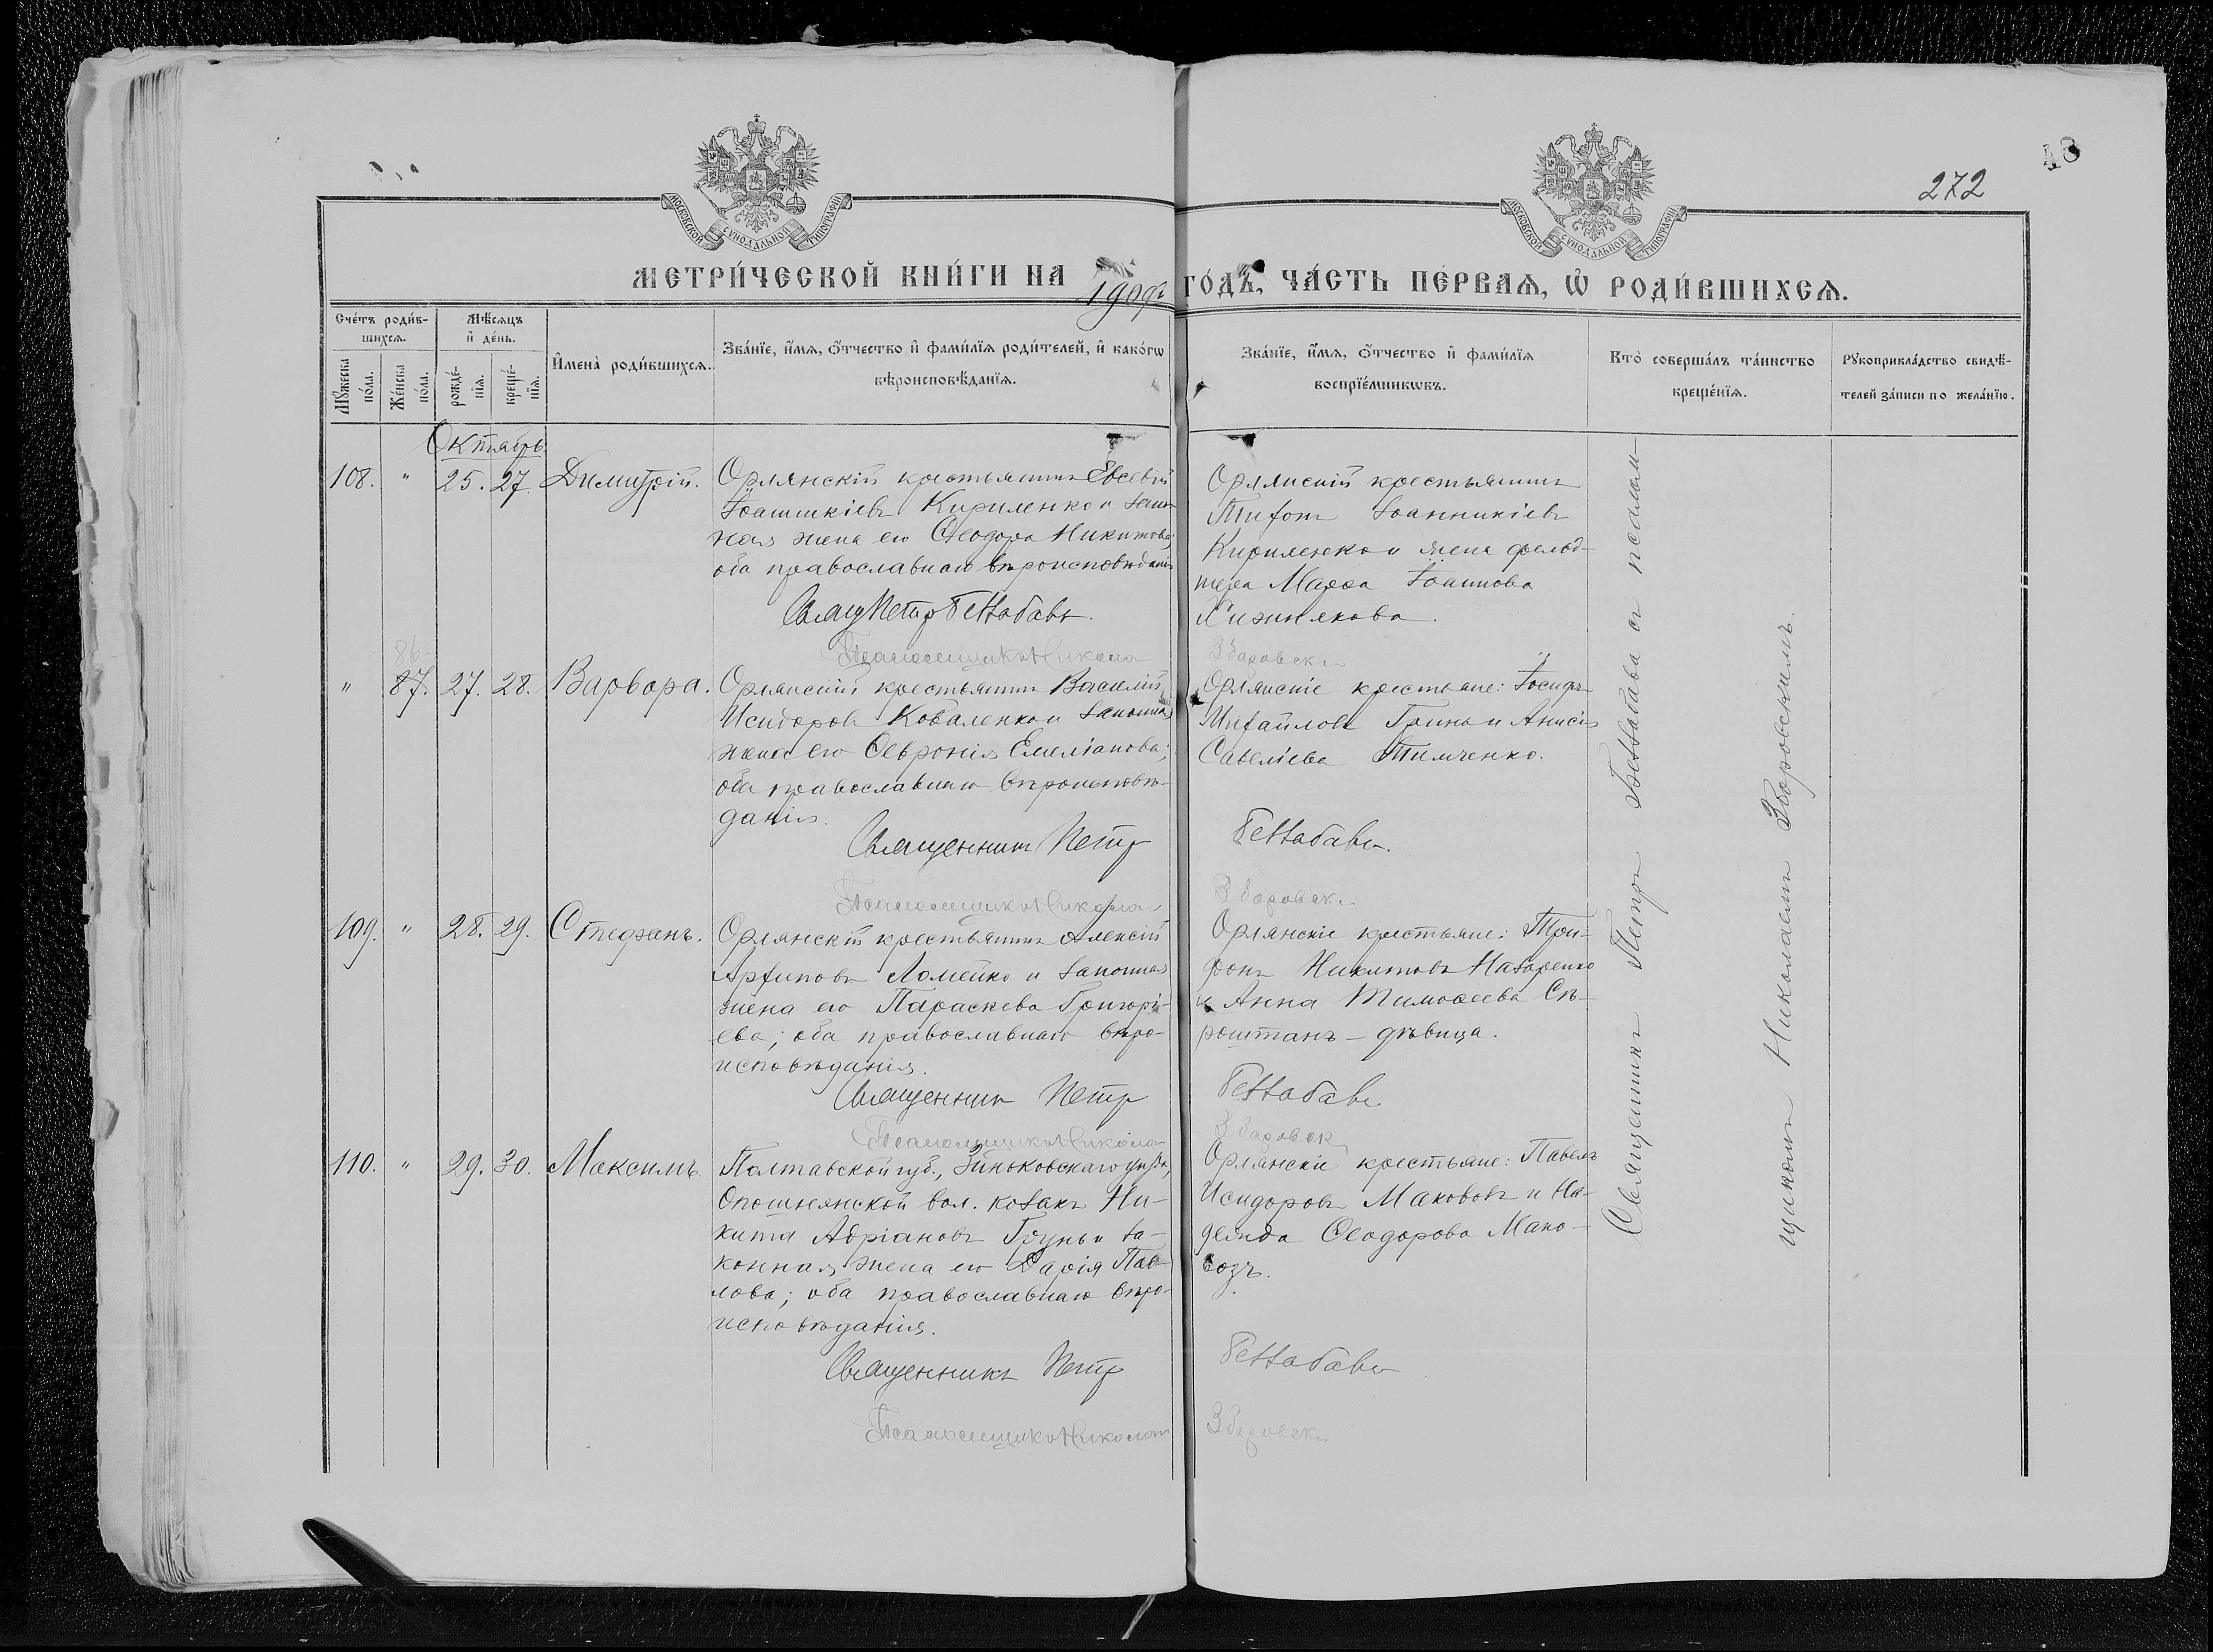 48
272
МОСКОВСКОЙ СѴНОДАЛЬНОЙ ТИПОГРАФІИ
МОСКОВСКОЙ СѴНОДАЛЬНОЙ ТИПОГРАФІИ
МЕТРИ́ЧЕСКОЙ КНИ́ГИ НА 1909г ГО́ДЪ, ЧА́СТЬ ПЕ́РВАѦ, Ѡ҆ РОДИ́ВШИХСѦ.
Сче́тъ роди́в-
шихсѧ.
Мꙋ́жеска по́ла.
Же́нска по́ла.
Мѣ́сѧцъ
и҆ де́нь.
рожде́-
нїѧ.
креще́-
нїѧ.
И҆мена̀ роди́вшихсѧ.
Зва́нїе, и҆́мѧ, ѻ҆́тчество и҆ фами́лїѧ роди́телей, и҆ како́гѡ
вѣроисповѣ́данїѧ.
Зва́нїе, и҆́мѧ, ѻ҆́тчество и҆ фами́лїѧ
воспрїе́мникѡвъ.
Кто̀ соверша́лъ та́инство
креще́нїѧ.
Рꙋкоприкла́дство свидѣ́-
телей за́писи по жела́нїю.
Октябрь.
108. " 25. 27. Димитрій.
Орлянскій крестьянинъ Евсевій
Іоанникіевъ Кириленко и закон-
ная жена его Ѳеодора Никитова;
оба православнаго вѣроисповѣданія
Свящ Петръ Беззабава
Псаломщикъ Николай
Орлянскій крестьянинъ
Тихонъ Іоанникіевъ
Кириленко и жена фельд-
шера Марѳа Іоаннова
Хижнякова.
Зборовскій
86.
" 87. 27. 28. Варвара.
Орлянскій крестьянинъ Василій
Исидоровъ Коваленко и законная
жена его Ѳевронія Емеліанова;
оба православнаго вѣроисповѣ-
данія.
Священникъ Петръ
Псаломщикъ Николай
Орлянскіе крестьяне: Іосифъ
Михайловъ Грино и Анисія
Савеліева Тимченко.
Беззабава.
Зборовскій
109. " 28. 29. Стефанъ.
Орлянскій крестьянинъ Алексій
Архиповъ Ломейко и законная
жена его Параскева Григорі-
ева; оба православнаго вѣро-
исповѣданія.
Священникъ Петръ
Псаломщикъ Николай
Орлянскіе крестьяне: Три-
фонъ Никитовъ Назаренко
и Анна Тимоѳеева Сѣ-
роштанъ - дѣвица.
Беззабава
Зборовскій
110. " 29. 30. Максимъ.
Полтавской губ., Зиньковскаго уѣзда,
Опошнянской вол. козакъ Ни-
кита Адріановъ Грунь и за-
конная жена его Дарія Пав-
лова; оба православнаго вѣро-
исповѣданія.
Священникъ Петръ
Псаломщикъ Николай
Орлянскіе крестьяне: Павелъ
Исидоровъ Маковозъ и На-
дежда Ѳеодорова Мако-
возъ.
Беззабава
Зборовскій
Священникъ Петръ Беззабава съ псалом-
щикомъ Николаемъ Зборовскимъ.